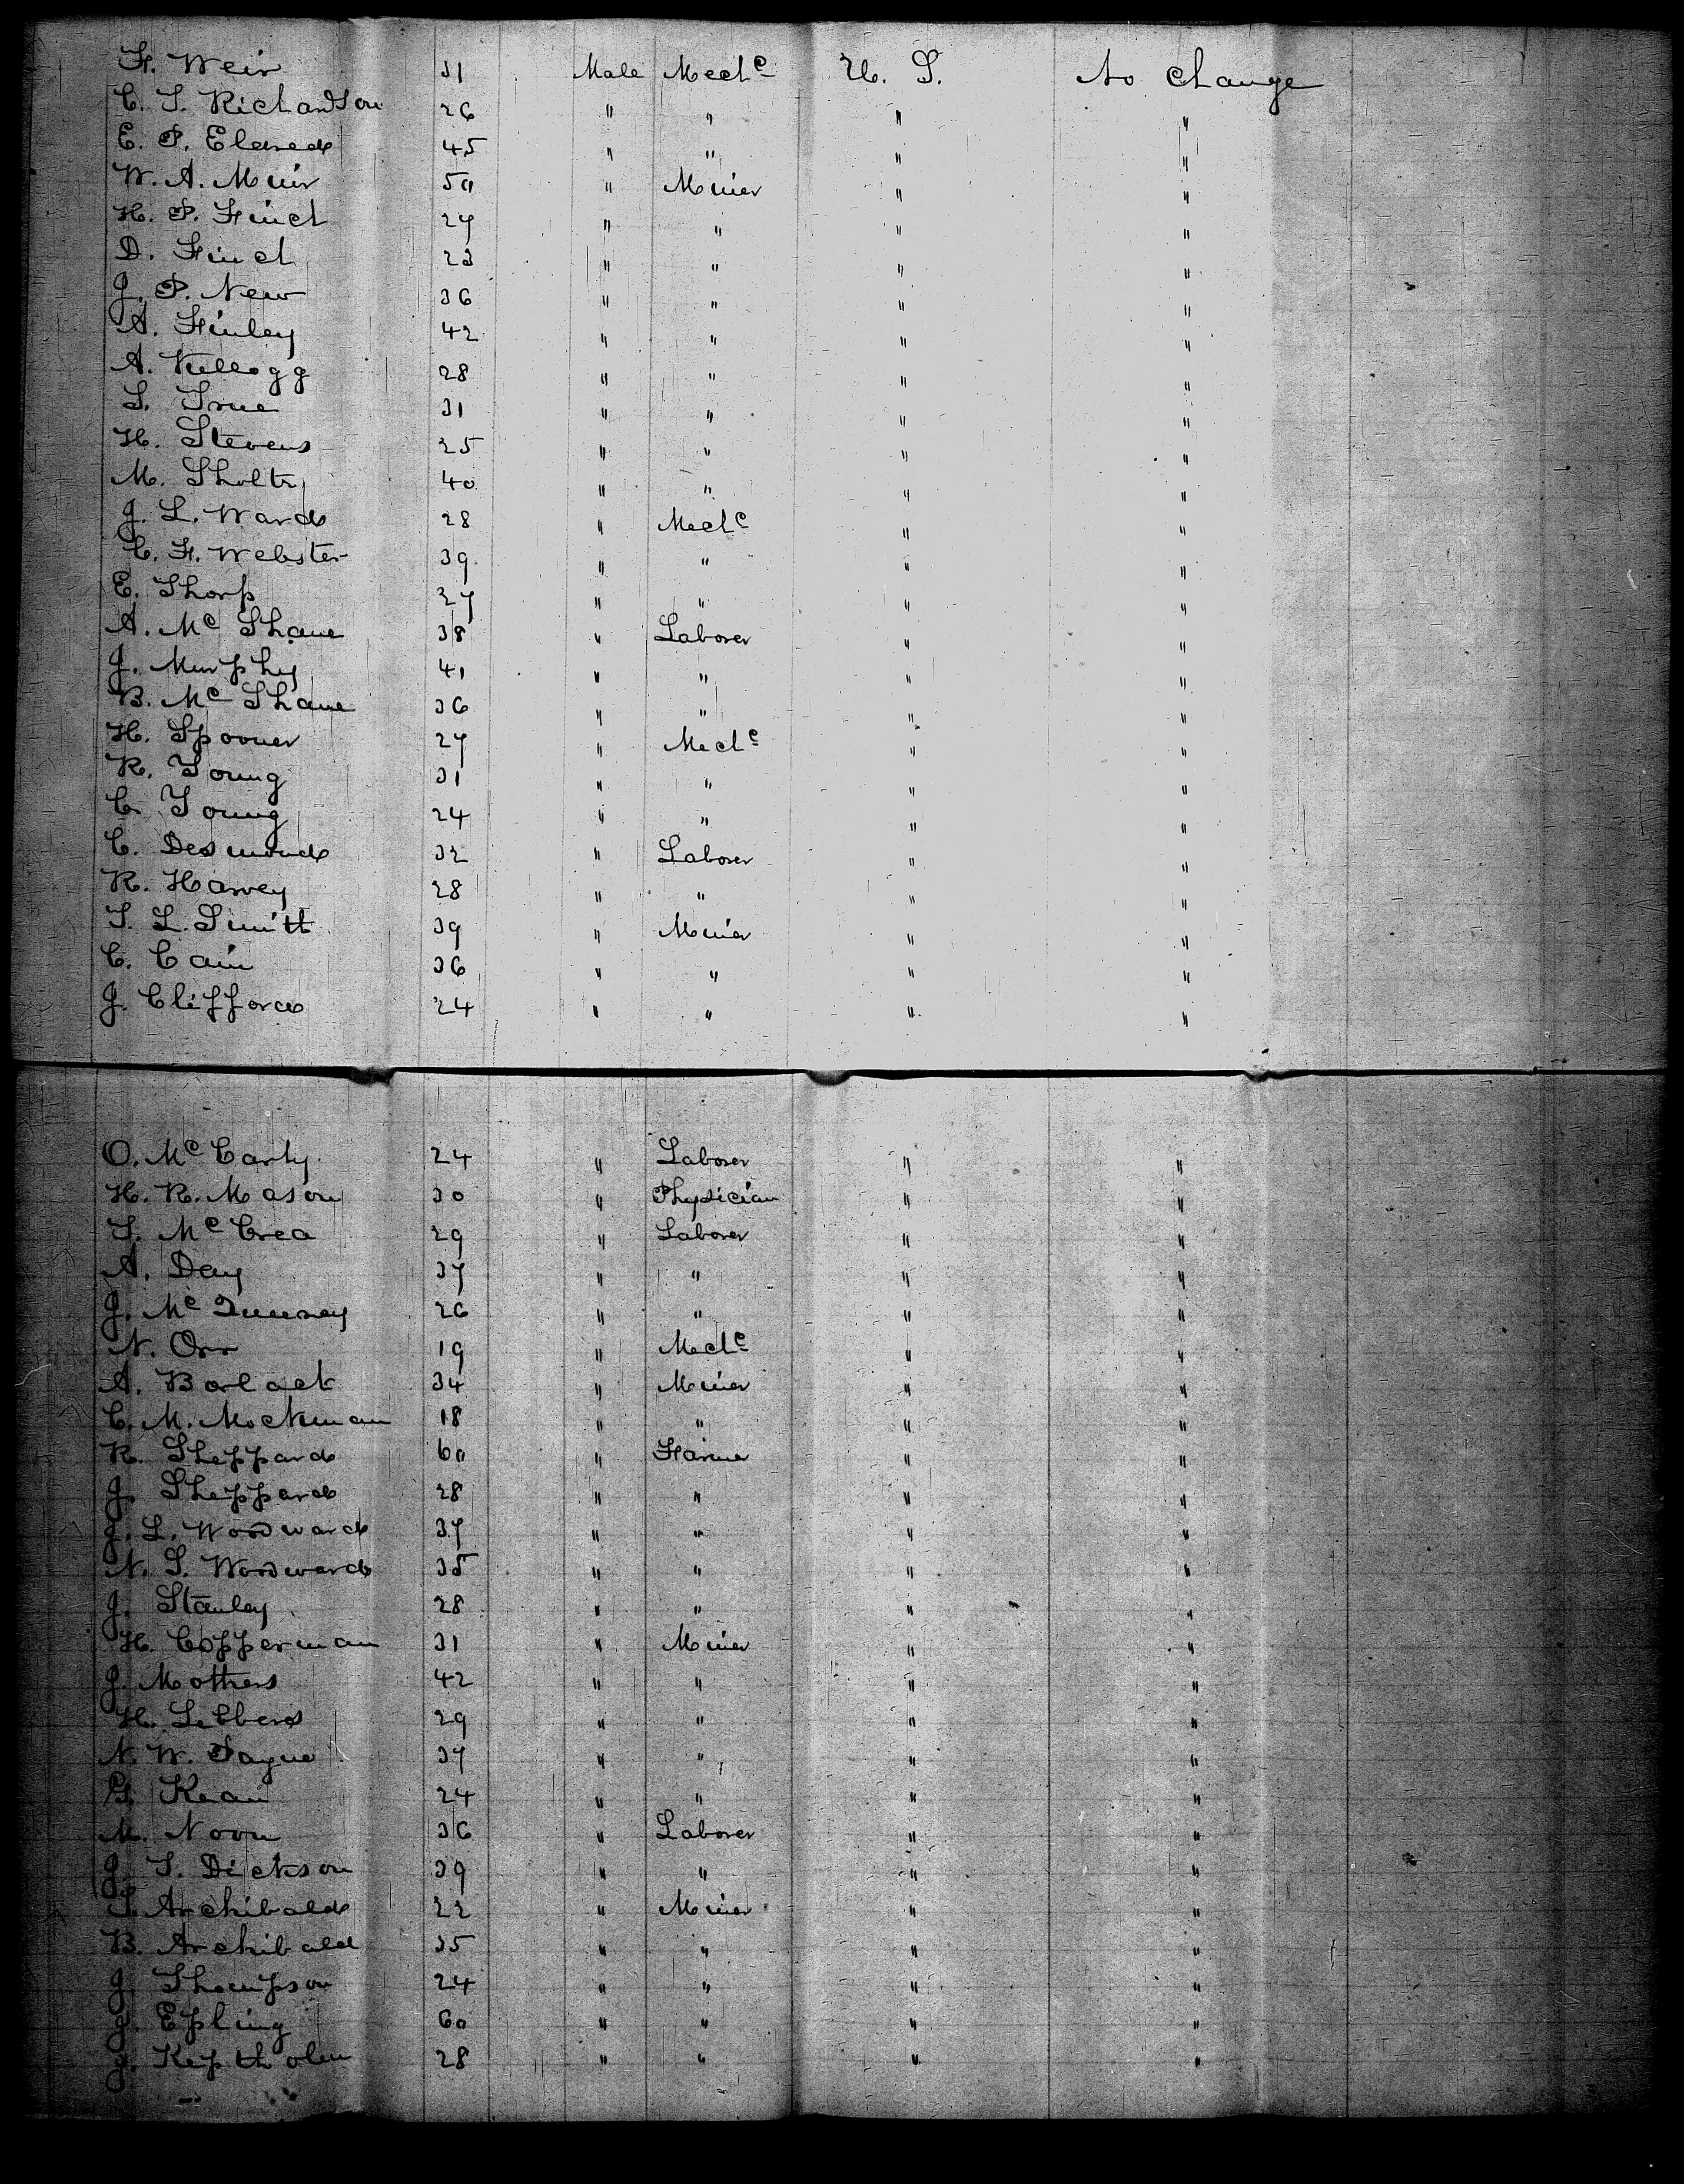 F. Weir 31 Male Mech<sup>c</sup> U. S. No change
C. S. Richardson 26 " " " "
E. P. Eldred 45 " " " "
W. A. Muir 50 " Miner " "
H. P. Finch 27 " " " "
D. Finch 23 " " " "
J. P. New 36 " " " "
A. Finley 42 " " " "
A. Kellogg 28 " " " "
S. True 31 " " " "
H. Stevens 25 " " " "
M. Sholtz 40 " " " "
J. L. Ward 28 " Mech<sup>c</sup> " "
C. F. Webster 39 " " " "
E. Thorp 27 " " " "
A. McShane 38 " Laborer " "
J. Murphy 41 " " " "
B. McShane 36 " " " "
H. Spooner 27 " Mech<sup>c</sup> " "
R. Young 31 " " " "
C. Young 24 " " " "
C. Desmond 32 " Laborer " "
R. Harvey 28 " " " "
T. L. Smith 39 " Miner " "
C. Cain 36 " " " "
J. Clifford 24 " " " "
O. McCarty 24 " Laborer " "
H. R. Mason 30 " Physician " "
T. McCrea 29 " Laborer " "
A. Day 37 " " " "
J. Mc 26 " " " "
N. Orr 19 " Mech<sup>c</sup> " "
A. Borlack 34 " Miner " "
C. M. Mockman 18 " " " "
R. Sheppard 60 " Farmer " "
J. Sheppard 28 " " " "
J. L. Woodward 37 " " " "
N. S. Woodward 35 " " " "
J. Stanley 28 " " " "
H. Copperman 31 " Miner " "
J. Mothers 42 " " " "
H. Lebbers 29 " " " "
N. W. Payne 37 " " " "
G. Kean 24 " " " "
M. Noon 36 " Laborer " "
J. S. Dickson 39 " " " "
S. Archibald 22 " Miner " "
B. Archibald 35 " " " "
J. Thompson 24 " " " "
J. Epling 60 " " " "
J. 28 " " " "